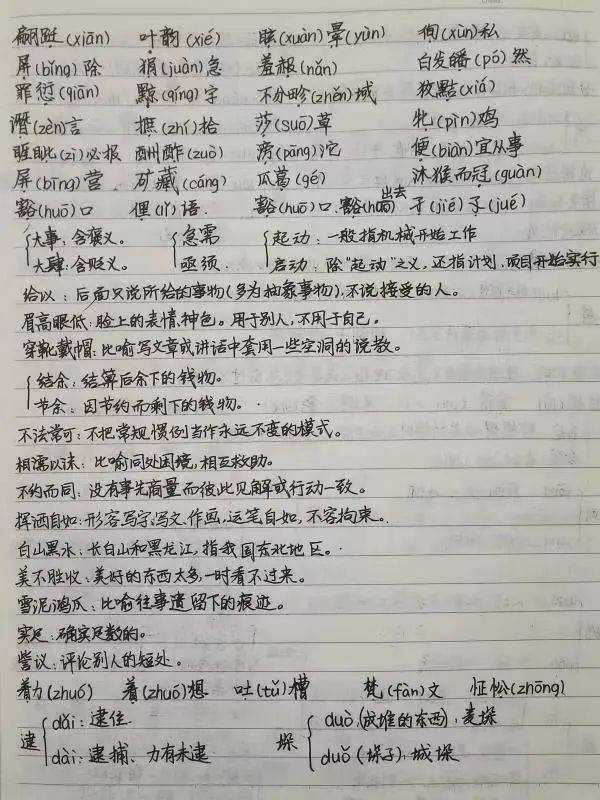 翩跹(xiān) 叶韵(xié) 眩(xuàn)晕(yùn) 徇(xùn)私
屏(bǐng)除 狷(juàn)急 羞赧(nǎn) 白发皤(pó)然
罪愆(qiān) 黥(qíng)字 不分畛(zhěn)域 狡黠(xiá)
谮(zèn)言 摭(zhí)拾 莎(suō)草 牝(pìn)鸡
睚眦(zì)必报 酬酢(zuò) 滂(pāng)沱 便(biàn)宜从事
屏(bīng)营 矿藏(cáng) 瓜葛(gé) 沐猴而冠(guàn)
豁(huō)口 俚(lǐ)语 豁(huō)口、豁(huō)出去 孑(jié)孓(jué)
大事:含褒义。 急需 起动:一般指机械开始工作
大肆:含贬义。 亟须 启动:除“起动”之义,还指计划、项目开始实行
给以:后面只说所给的事物(多为抽象事物),不说接受的人。
眉高眼低:脸上的表情、神色。用于别人,不用于自己。
穿靴戴帽:比喻写文章或讲话中套用一些空洞的说教。
结余:结算后余下的钱物。
节余:因节约而剩下的钱物。
不法常可:不把常规、惯例当作永远不变的模式。
相濡以沫:比喻同处困境,相互救助。
不约而同:没有事先商量而彼此见解或行动一致。
挥洒自如:形容写字、写文、作画,运笔自如,不容拘束。
白山黑水:长白山和黑龙江,指我国东北地区。
美不胜收:美好的东西太多,一时看不过来。
雪泥鸿爪:比喻往事遗留下的痕迹。
实足:确实足数的。
訾议:评论别人的短处。
着力(zhuó) 着(zhuó)想 吐(tǔ)槽 梵(fàn)文 怔忪(zhōng)
逮 dǎi:逮住 垛 duò(成堆的东西),麦垛
dài:逮捕、力有未逮 duǒ(垛子),城垛